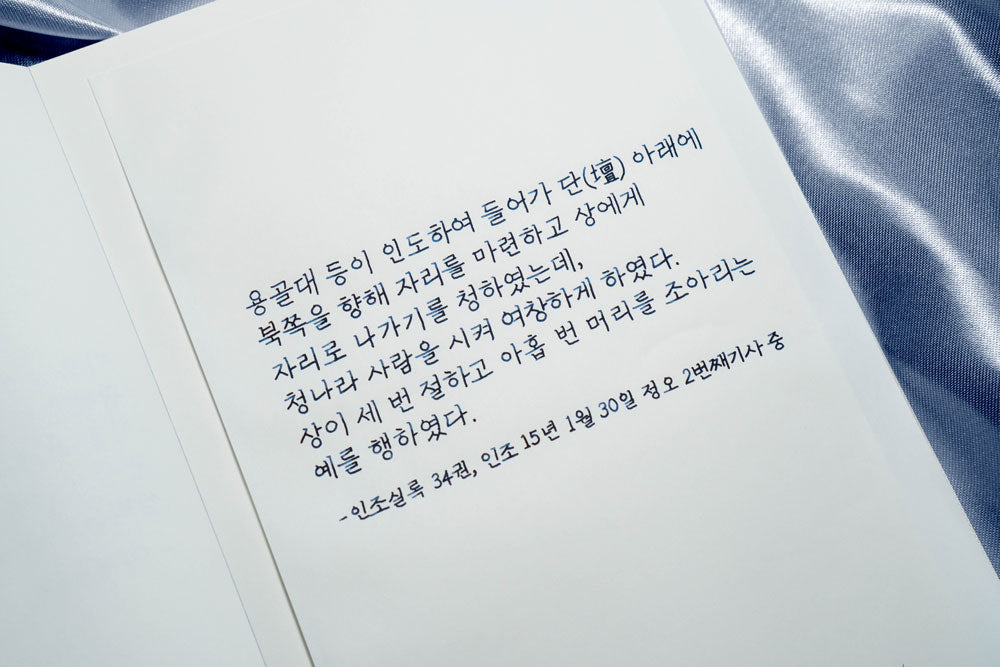 용골대 등이 인도하여 들어가 단(壇) 아래에
북쪽을 향해 자리를 마련하고 상에게
자리로 나가기를 청하였는데,
청나라 사람을 시켜 여창하게 하였다.
상이 세 번 절하고 아홉 번 머리를 조아리는
예를 행하였다.
-인조실록 34권, 인조 15년 1월 30일 정오 2번째기사 중